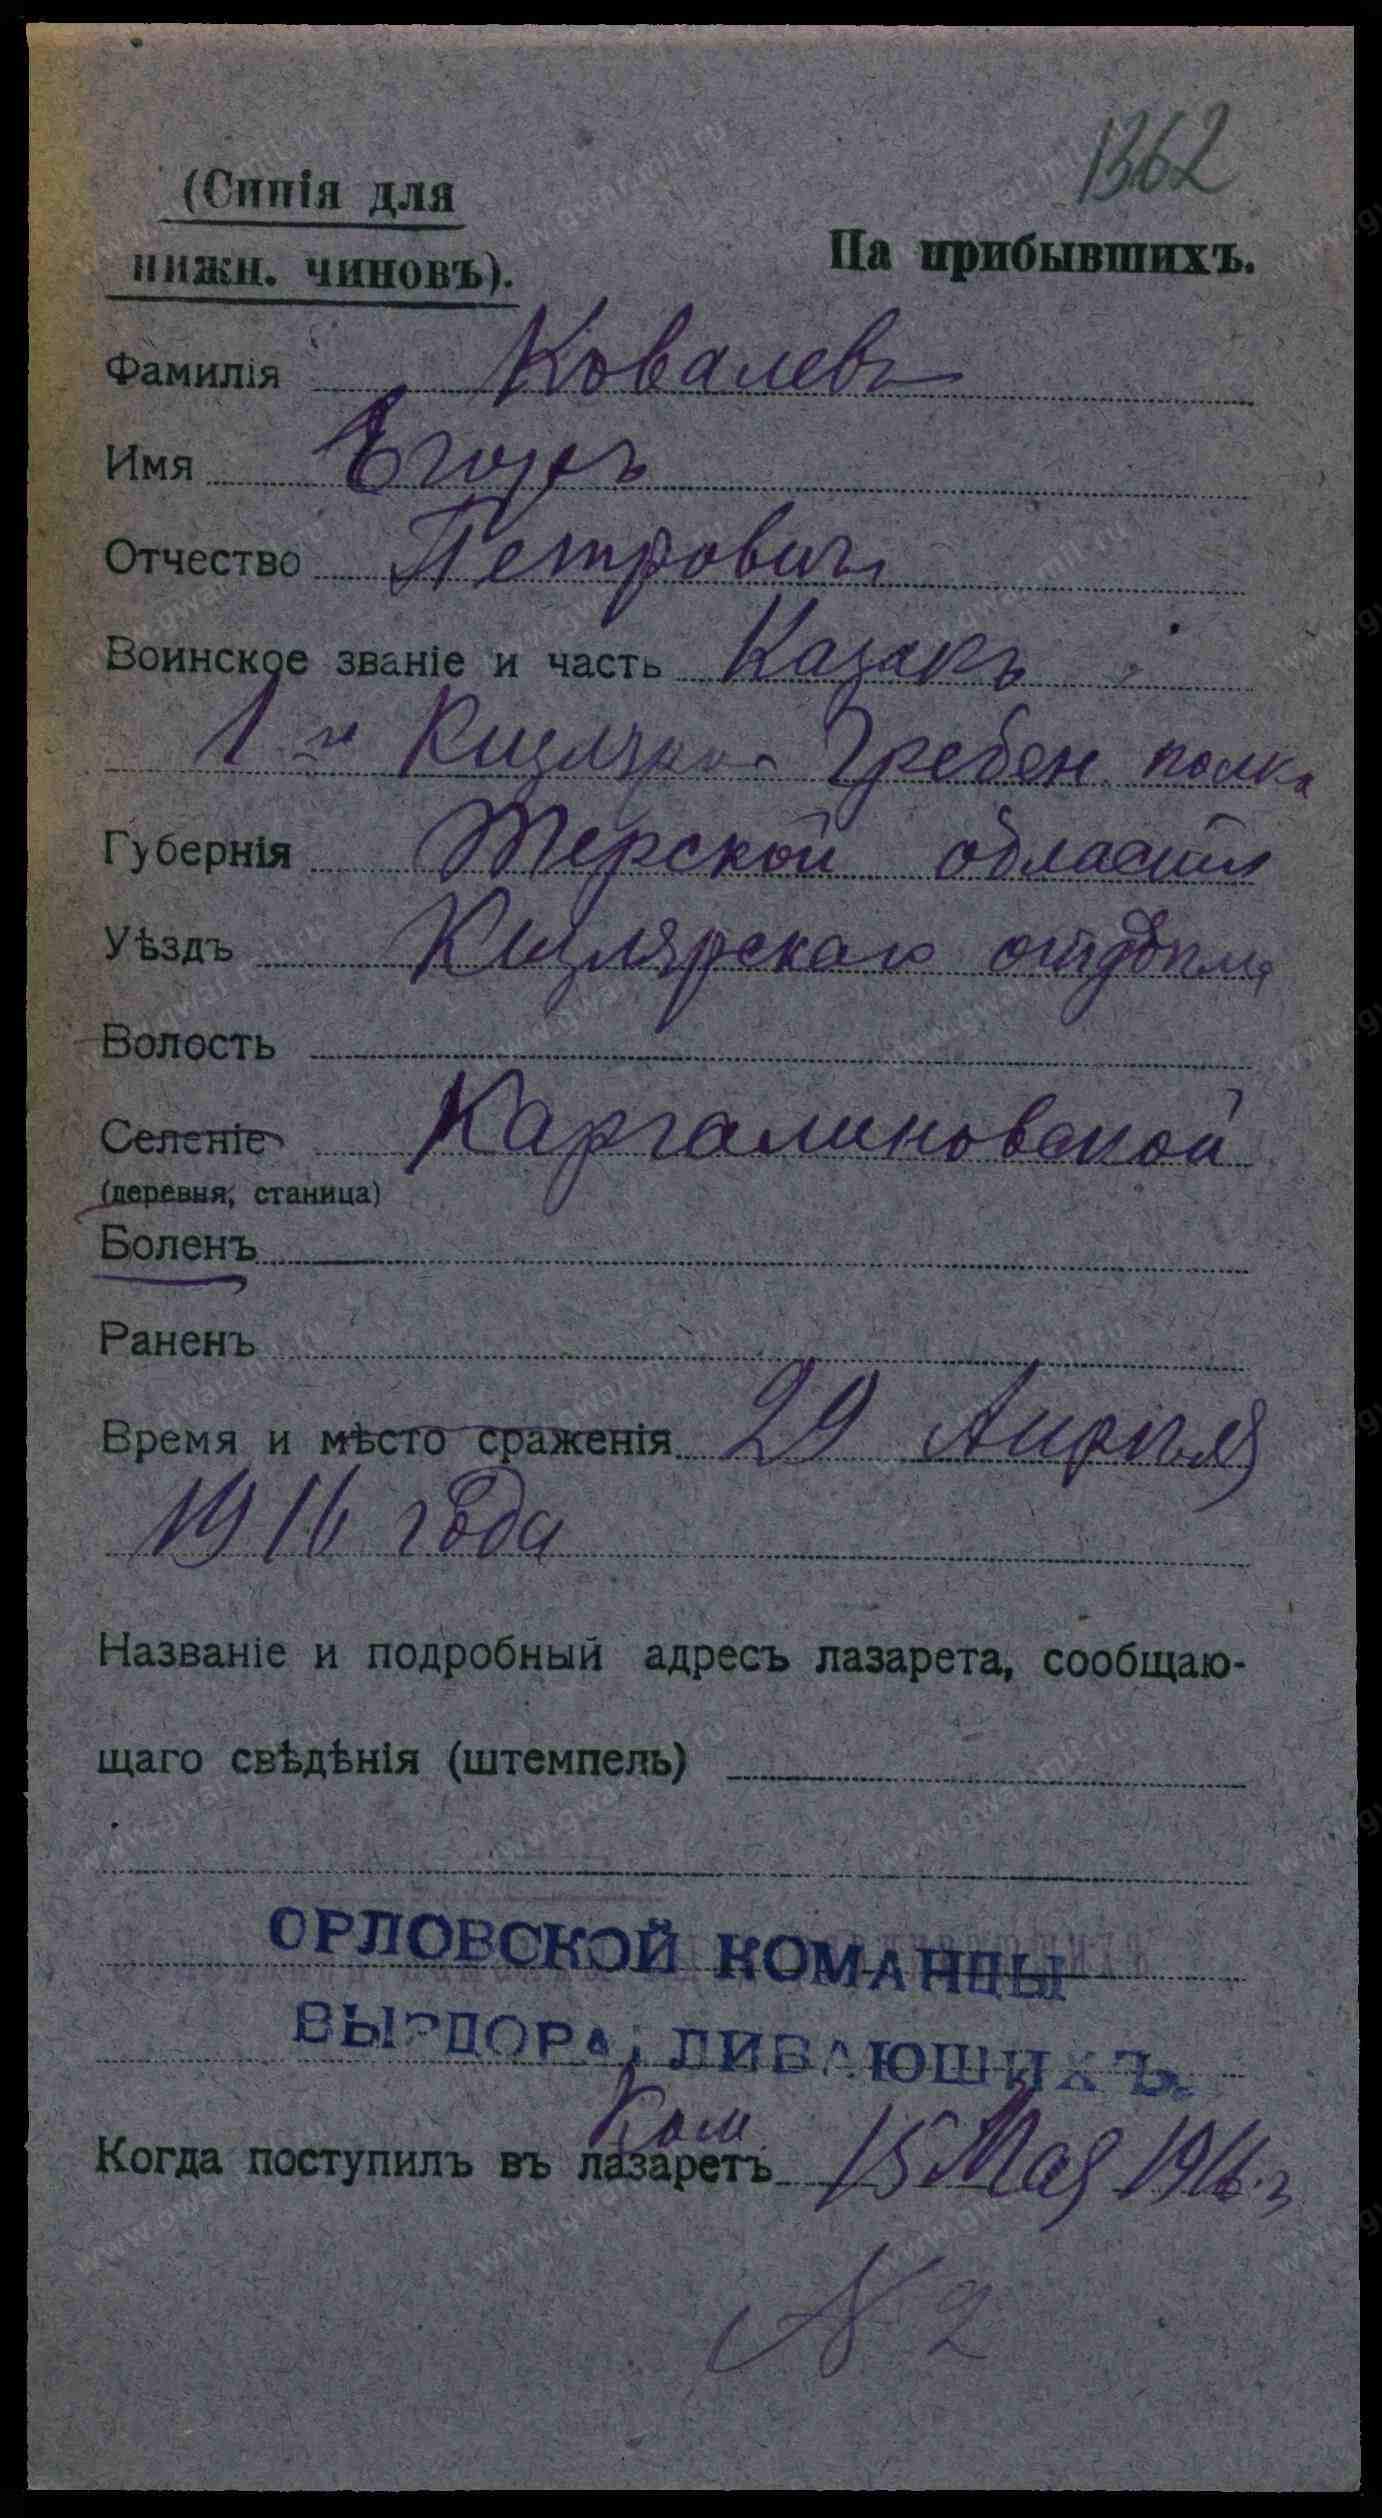 1362
(Синія для
нижн. чиновъ).
На прибывшихъ.
Фамилія Ковалевъ
Имя Егоръ
Отчество Петровичъ
Воинское званіе и часть Казакъ
1го Кизляро- Гребен. полка
Губернія Терской области
Уѣздъ Кизлярскаго отдѣла
Волость
Селеніе Каргалиновской
(деревня, станица)
Боленъ
Раненъ
Время и мѣсто сраженія 29 Апрѣля
1916 года
Названіе и подробный адресъ лазарета, сообщаю-
щаго свѣдѣнія (штемпель)
ОРЛОВСКОЙ КОМАНДЫ
ВЫЗДОРАВЛИВАЮЩИХЪ.
Ком.
Когда поступилъ въ лазаретъ 15 Мая 1916 г.
№ 2
www.gwar.mil.ru